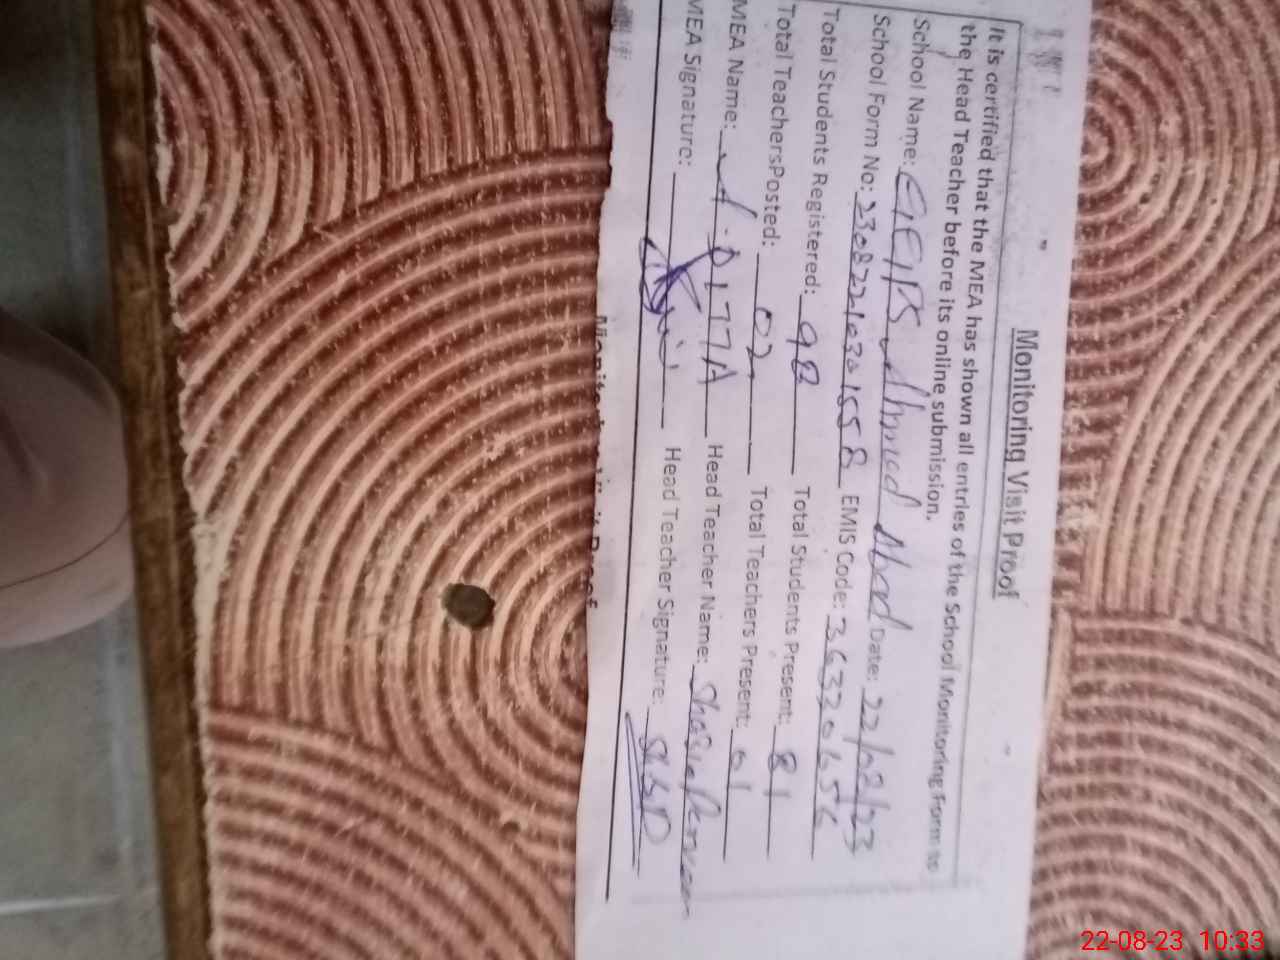 Monitoring Visit Proof
It is certified that the MEA has shown all entries of the School Monitoring Form to
the Head Teacher before its online submission.
School Name: GGPS Ahmad Abad Date: 22/08/23
School Form No: 23082210301558 EMIS Code: 36320656
Total Students Registered: 98 Total Students Present: 81
Total TeachersPosted: 02 Total Teachers Present: 01
MEA Name: A. DITTA Head Teacher Name: Shazia Perveen
MEA Signature: Head Teacher Signature:
Monitoring Visit Proof
22-08-23 10:33